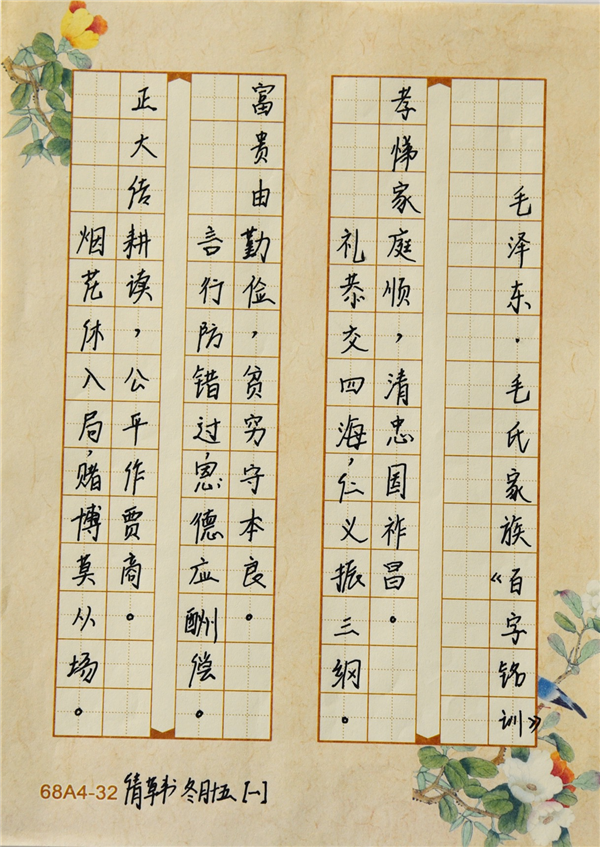 毛泽东·毛氏家族《百字铭训》
孝悌家庭顺，清忠国祚昌。
礼恭交四海，仁义振三纲。
富贵由勤俭，贫穷守本良。
言行防错过，恩德应酬偿。
正大佶耕读，公平作贾商。
烟花休入局，赌博莫从场。
68A4-32 倩草书 冬月十五 [一]